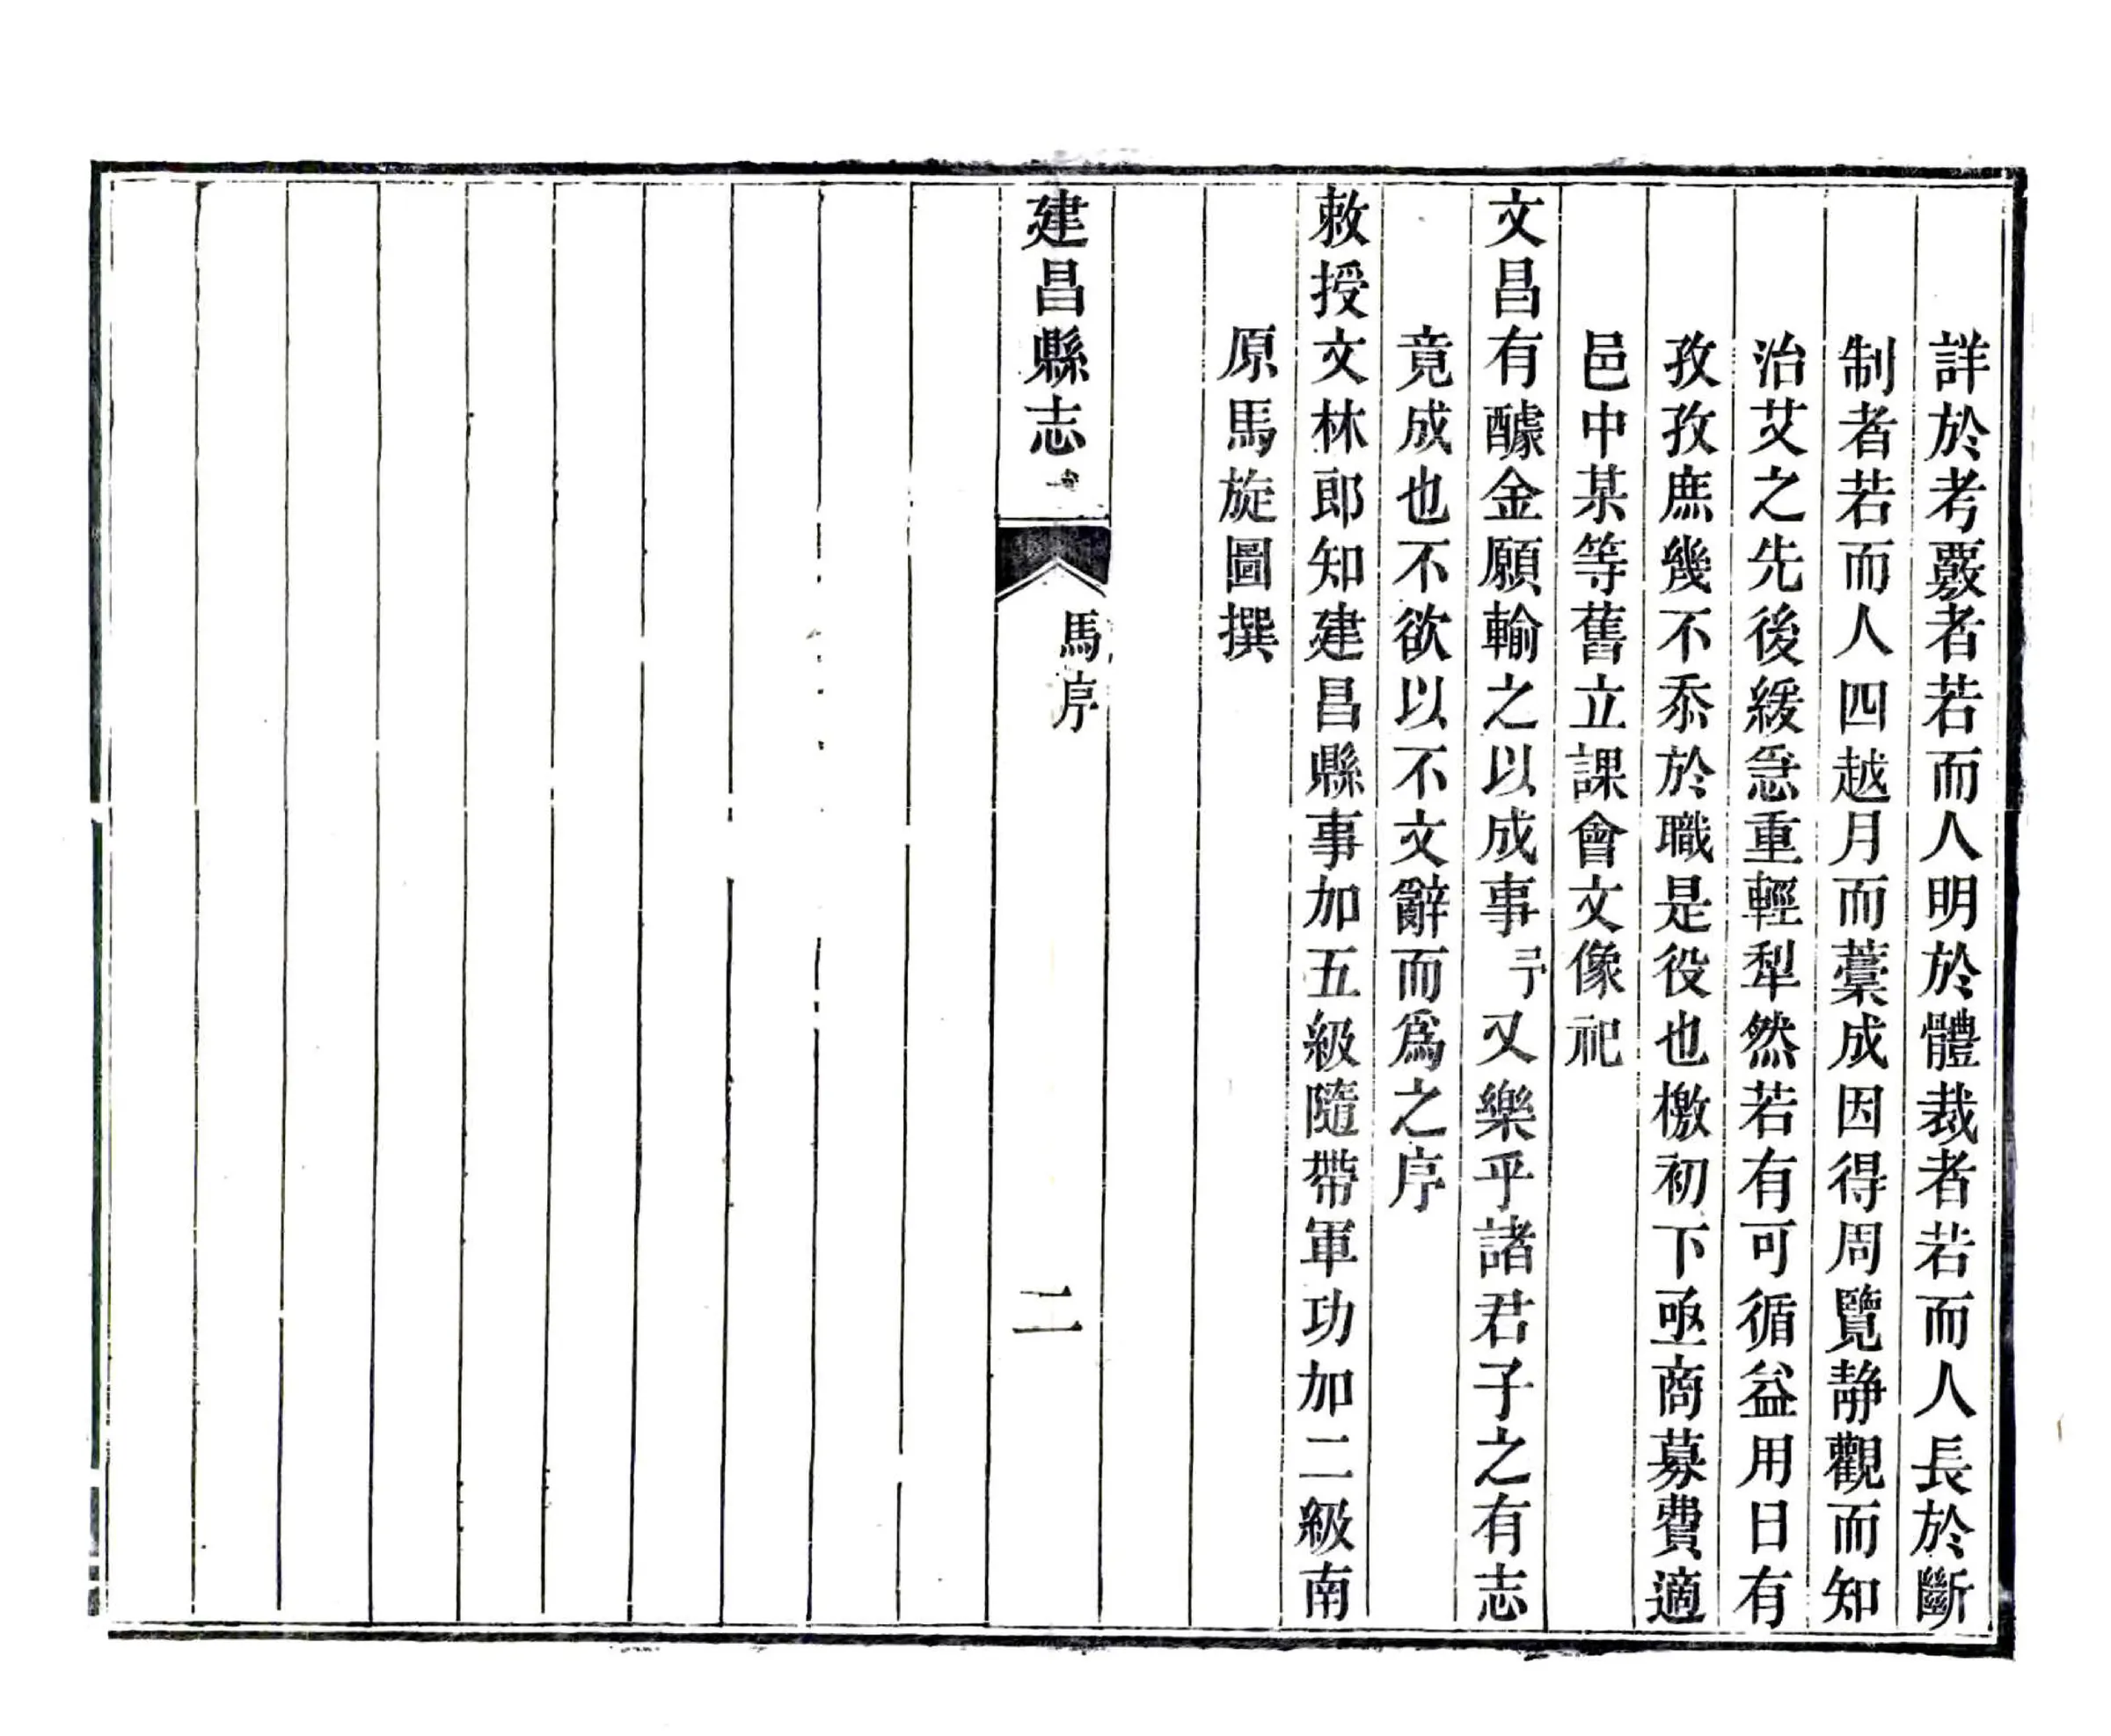 詳於考覈者若而人明於體裁者若而人長於斷
制者若而人四越月而藁成因得周覽静觀而知
治艾之先後緩急重輕犁然若有可循益用日有
孜孜庶幾不忝於職是役也檄初下亟商募費適
邑中某等舊立課會文像祀
文昌有醵金願輸之以成事又樂乎諸君子之有志
竟成也不欲以不文辭而爲之序
敕授文林郎知建昌縣事加五級隨帶軍功加二級南
原馬旋圖撰
建昌縣志
馬序
二